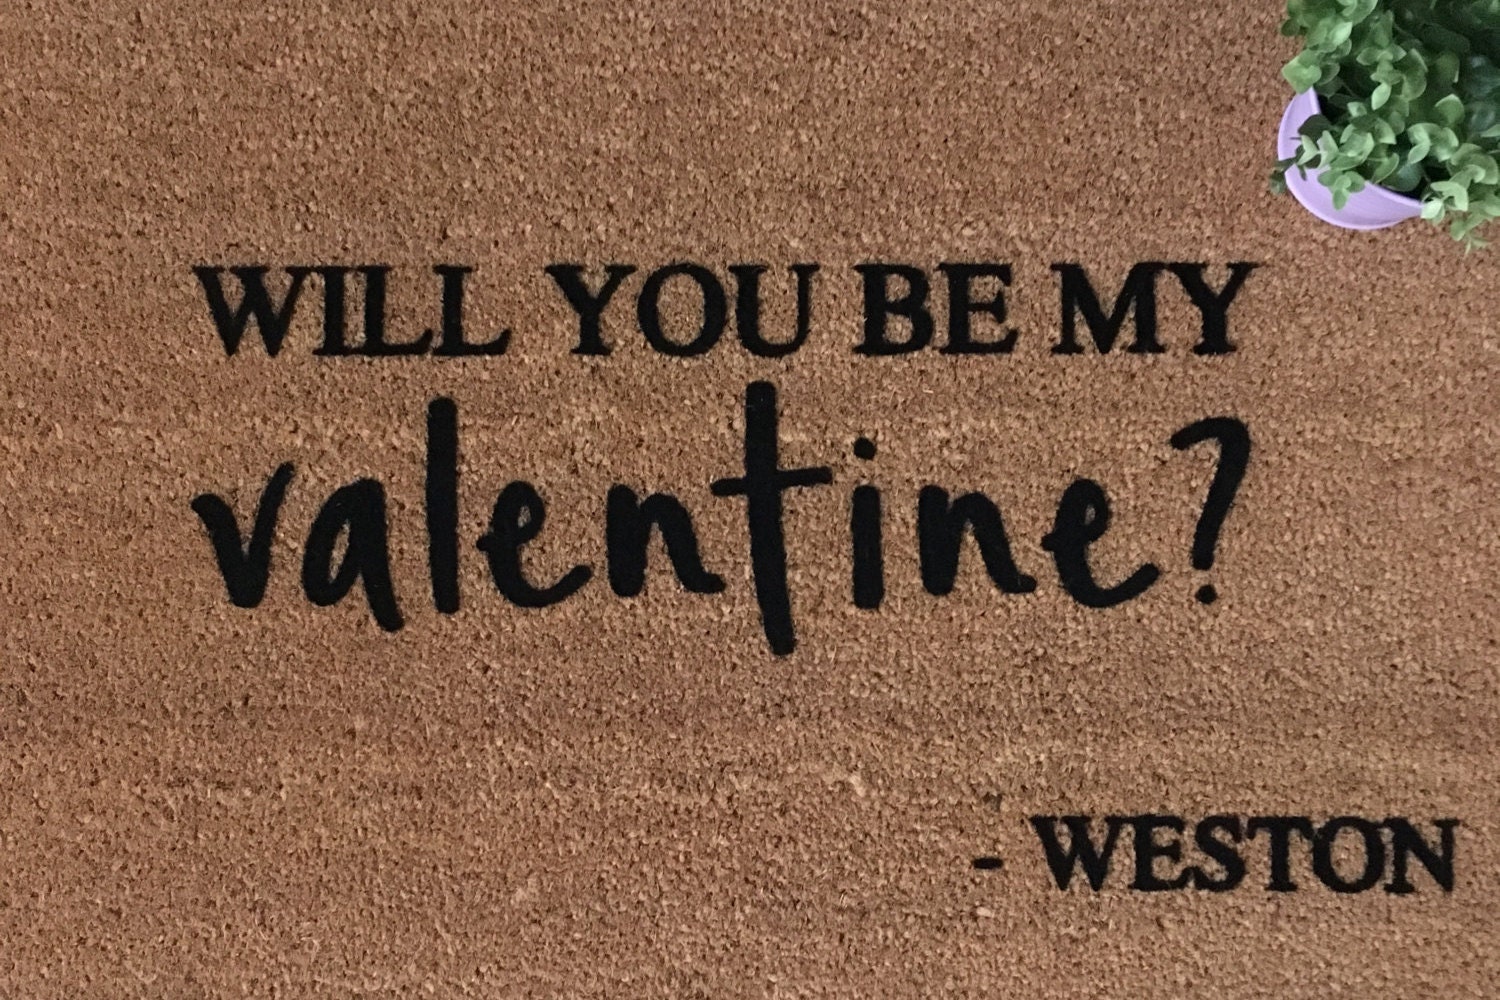 WILL YOU BE MY
valentine?
- WESTON